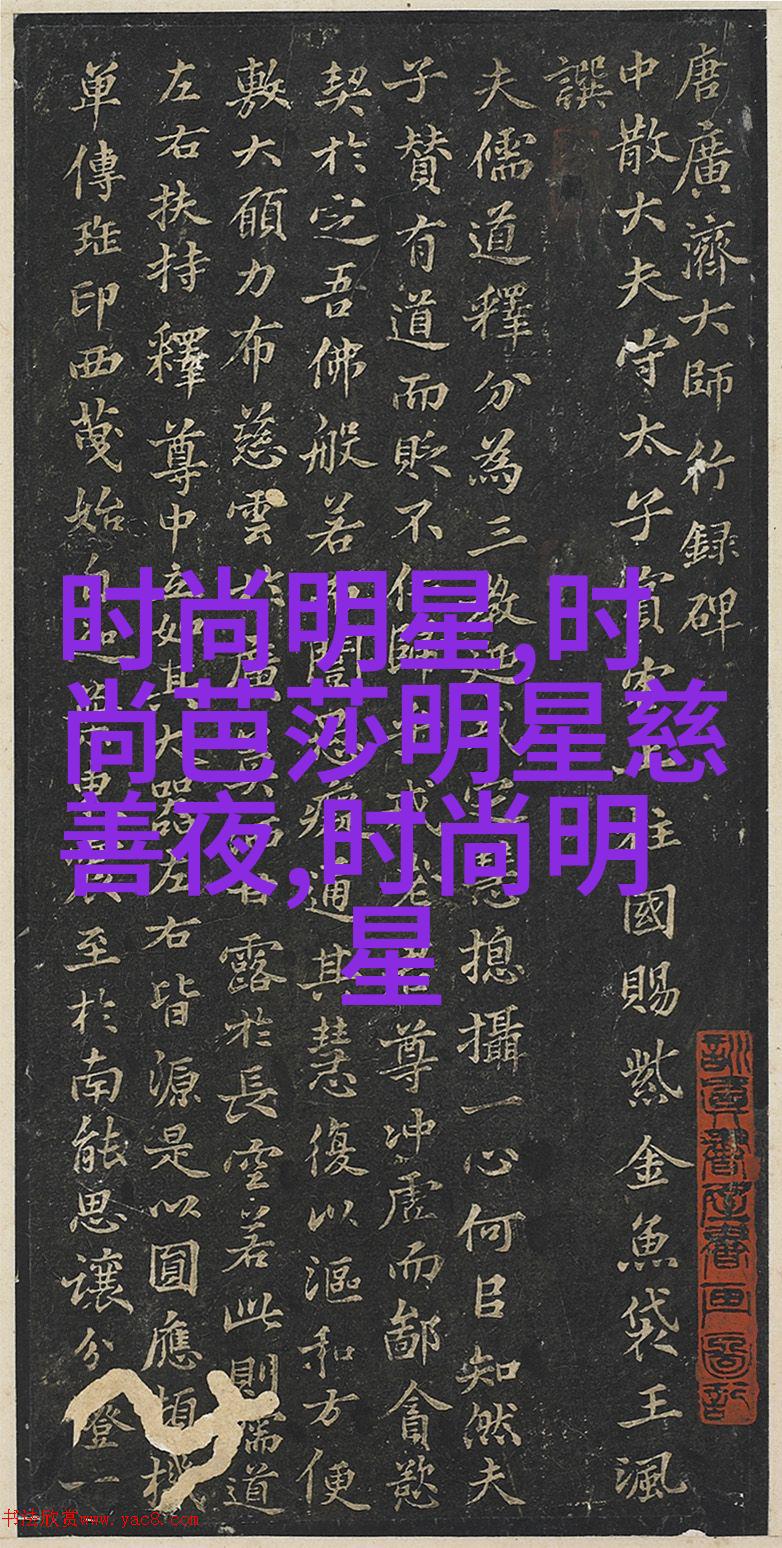 唐廣濟大師行録碑
中散大夫守太子賓柱國賜紫金魚袋王渢
譔
夫儒道釋分為三教摠攝一心何㠯知然夫
子賛有道而貶不尊冲虛而鄙貪慾
契於定吾佛般若通其慧復以漚和方便
敷大願力布慈雲露於長空若此則儒道
左右扶持釋尊中立如其大器左右皆源是以圓應頓機
單傳印西始至於南能思讓分燈一
时尚明星,时
尚芭莎明星慈
善夜,时尚明
星
书法欣赏www.yac8.com